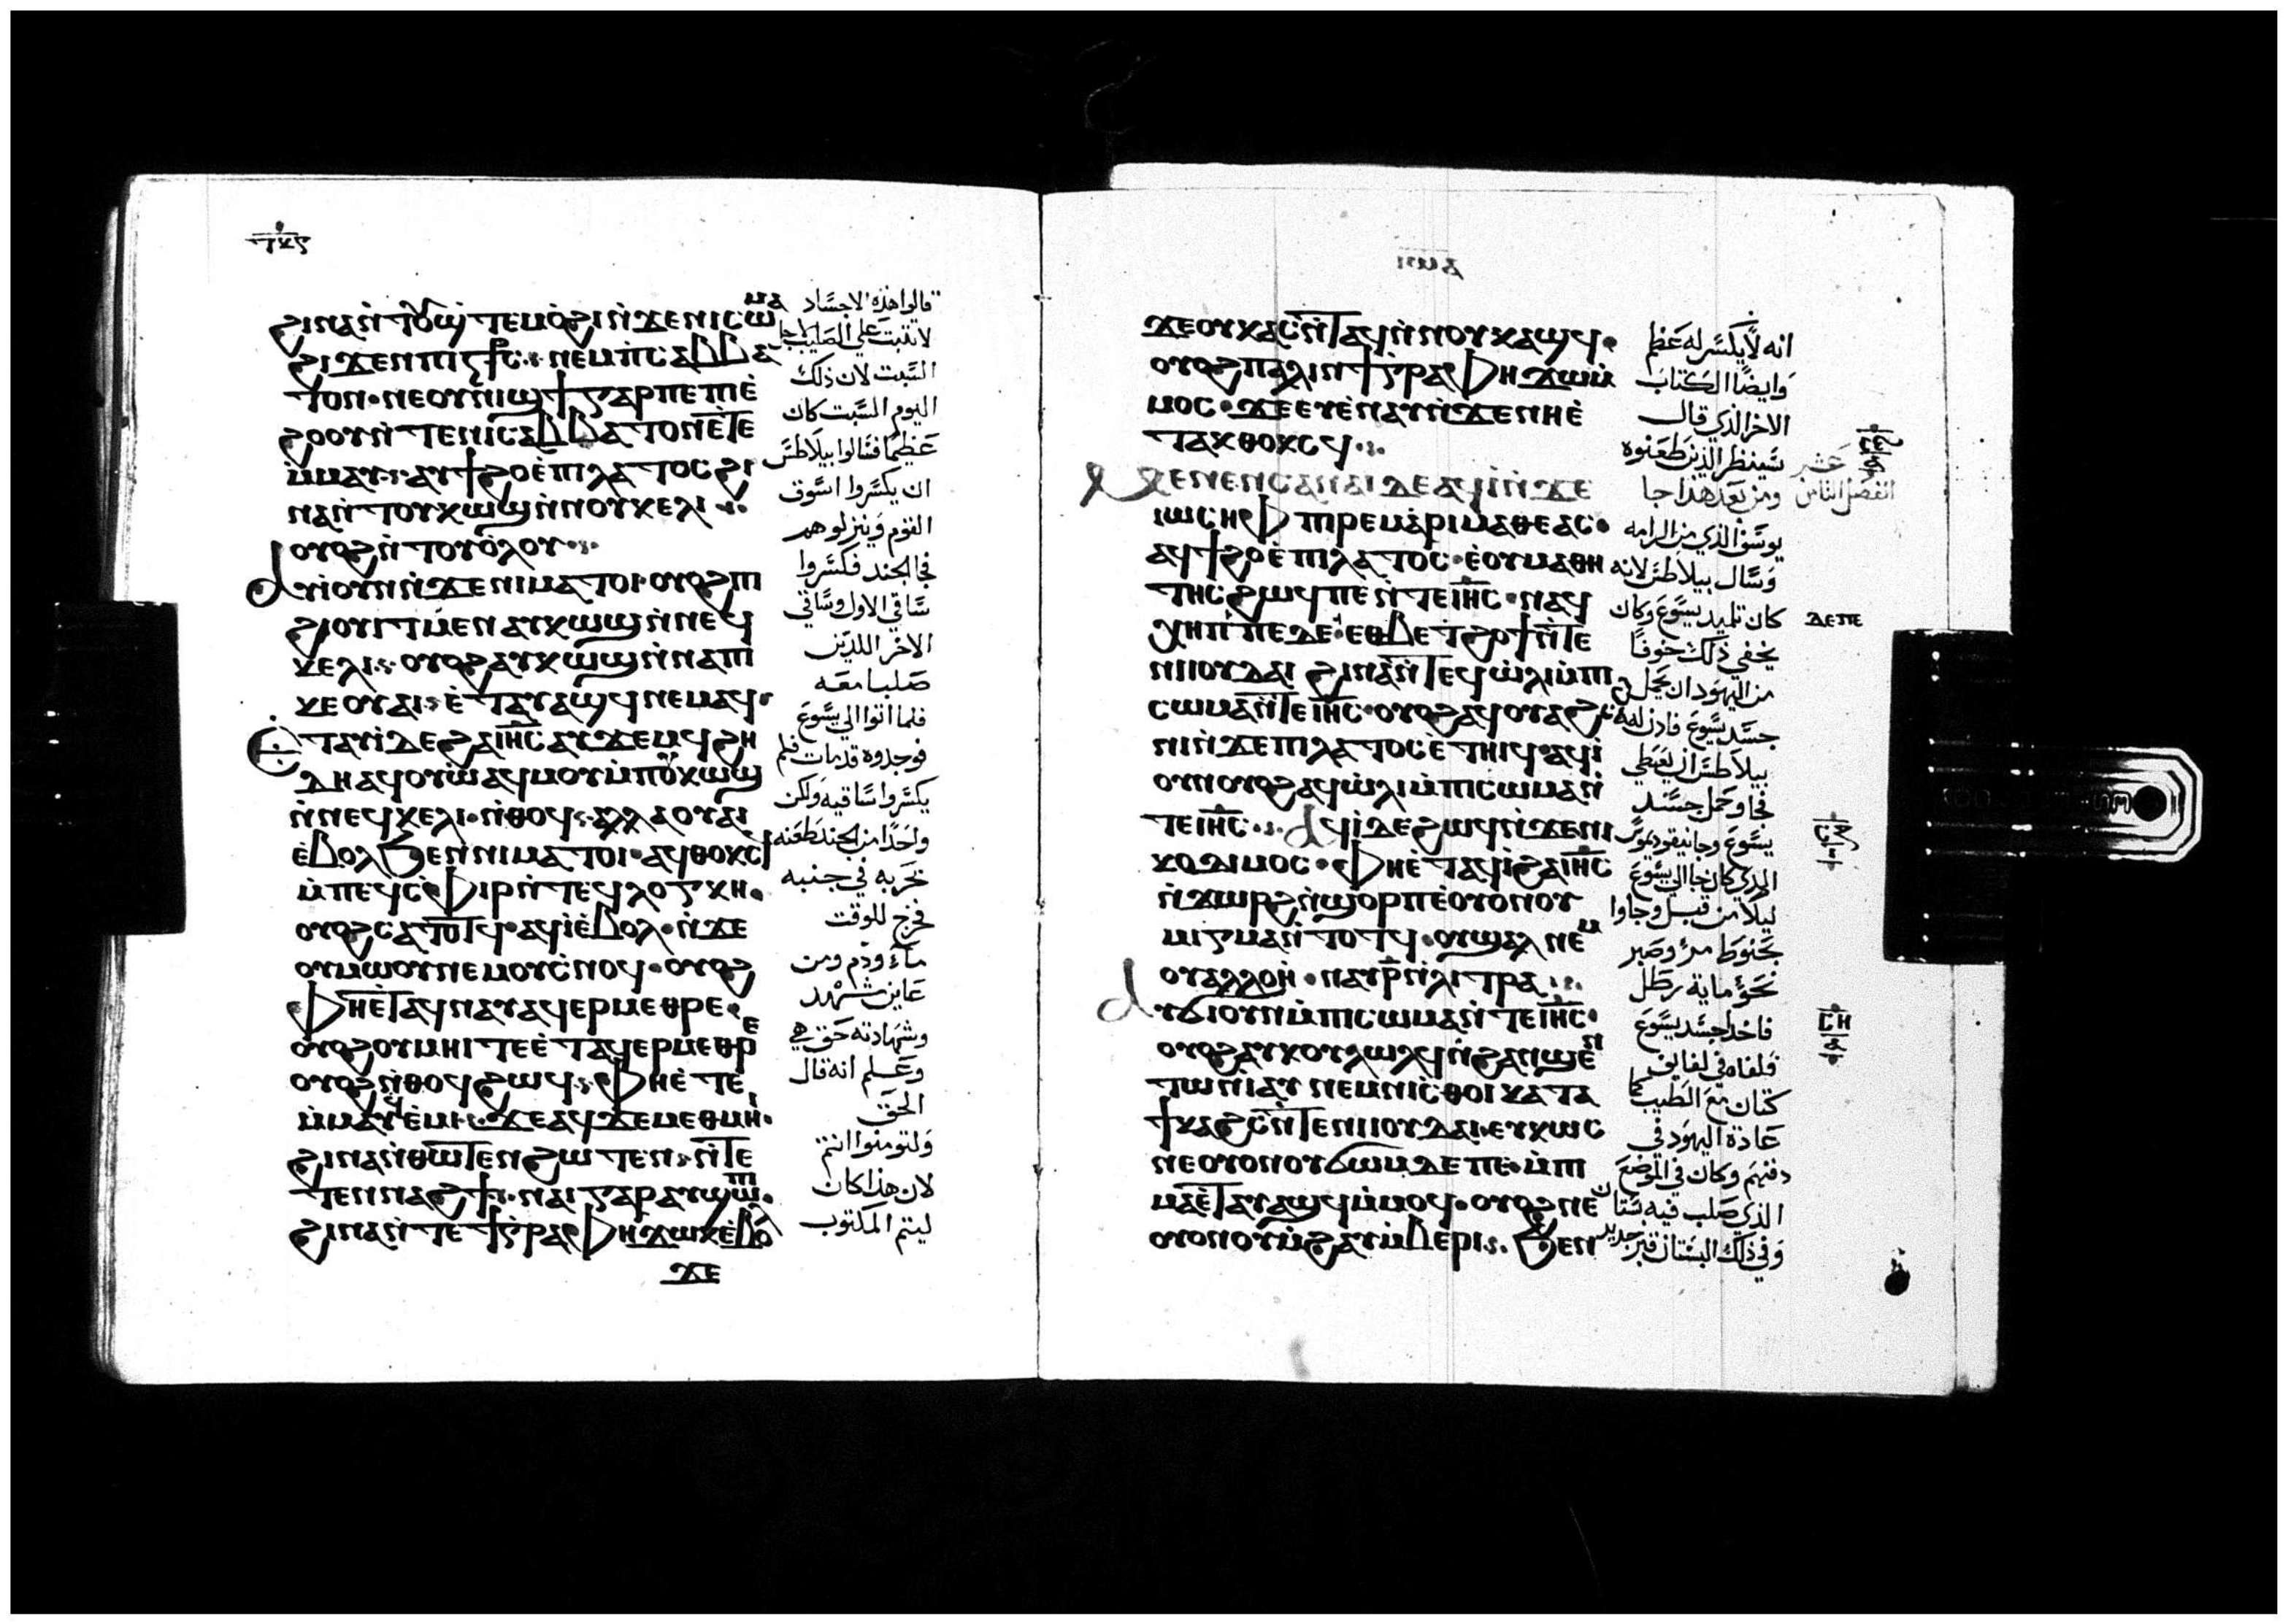 ϩⲓⲛⲁ ⲛ̀ⲧⲟⲩϣ̀ⲧⲉⲙⲟ̀ϩⲓ ⲛ̀ϫⲉⲛⲓⲥⲱⲙⲁ
ϩⲓϫⲉⲛ ⲡⲓⲥϯⲥ ⲙ̀ⲡⲥⲁⲃⲃⲁ
ⲧⲟⲛ · ⲛⲉⲟⲩⲛⲓϣϯ ⲅⲁⲣ ⲡⲉ ⲡⲓⲉ̀
ϩⲟⲟⲩ ⲛ̀ⲧⲉⲛⲓⲥⲁⲃⲃⲁⲧⲟⲛ ⲉ̀ⲧⲉ
ⲙ̀ⲙⲁⲩ · ⲁⲩϯϩⲟ ⲉ̀ⲡⲓⲗⲁⲧⲟⲥ ϩⲓ
ⲛⲁ ⲛ̀ⲧⲟⲩⲕⲱϣ ⲛ̀ⲛⲟⲩⲕⲉⲗⲓ
ⲟⲩⲟϩ ⲛ̀ⲧⲟⲩⲟ̀ⲗⲟⲩ
ⲁⲩⲓ̀ⲟⲩⲛ ⲛ̀ϫⲉⲛⲓⲙⲁⲧⲟⲓ · ⲟⲩⲟϩ ⲡⲓ
ϩⲟⲩⲓⲧ ⲙⲉⲛ ⲁⲩⲕⲱϣ ⲛ̀ⲛⲉϥ
ⲕⲉⲗⲓ · ⲟⲩⲟϩ ⲁⲩⲕⲱϣ ⲛ̀ⲛⲁⲡⲓ
ⲕⲉⲟⲩⲁⲓ · ⲉ̀ⲧⲁⲩⲁϣϥ ⲛⲉⲙⲁϥ
ⲉ̀ⲧⲁⲩⲓ̀ ⲇⲉ ϩⲁ ⲓⲏⲥ ⲁⲩϫⲉⲙϥ ϩⲏ
ⲇⲏ ⲁϥⲟⲩⲱ ⲁϥⲙⲟⲩ ⲙ̀ⲡⲟⲩⲕⲱϣ
ⲛ̀ⲛⲉϥⲕⲉⲗⲓ · ⲛ̀ⲑⲟϥ · ⲁⲗⲗⲁ ⲟⲩⲁⲓ
ⲉ̀ⲃⲟⲗ ϧⲉⲛ ⲛⲓⲙⲁⲧⲟⲓ · ⲁϥⲑⲟⲕⲥϥ
ⲙ̀ⲡⲉϥⲥⲫⲓⲣ ⲛ̀ⲧⲉϥⲗⲟⲅⲭⲏ ·
ⲟⲩⲟϩ ⲥⲁⲧⲟⲧϥ · ⲁϥⲓ̀ ⲉ̀ⲃⲟⲗ · ⲛ̀ϫⲉ
ⲟⲩⲙⲱⲟⲩ ⲛⲉⲙ ⲟⲩⲥⲛⲟϥ · ⲟⲩⲟϩ
ⲫⲏ ⲉ̀ⲧⲁϥⲛⲁⲩ ⲁϥⲉⲣⲙⲉⲑⲣⲉ ·
ⲟⲩⲟϩ ⲟⲩⲙⲏⲓ ⲧⲉ ⲉ̀ⲧⲁϥⲉⲣⲙⲉⲑⲣⲉ
ⲟⲩⲟϩ ⲛ̀ⲑⲟϥ ϩⲱϥ · ⲫⲏ ⲉ̀ⲧⲉ
ⲙ̀ⲙⲁⲩ ϥ̀ⲉⲙⲓ · ϫⲉ ⲁϥϫⲉⲙⲉⲑⲙⲏⲓ ·
ϩⲓⲛⲁ ⲛ̀ⲑⲱⲧⲉⲛ ϩⲱⲧⲉⲛ · ⲛ̀ⲧⲉ
ⲧⲉⲛⲛⲁϩϯ · ⲛⲁⲓ ⲅⲁⲣ ⲁⲩϣⲱⲡⲓ ·
ϩⲓⲛⲁ ⲛ̀ⲧⲉϯⲅⲣⲁⲫⲏ ϫⲱⲕ ⲉ̀ⲃⲟⲗ
ϫⲉ
قالوا هذه الاجساد
لا تثبت علي الصليب لاجل
السبت لان ذلك
اليوم السبت كان
عظيما فسالوا بيلاطس
ان يكسروا اسوق
القوم وينزلوهم
فجا الجند فكسروا
ساقي الاول وساقي
الاخر اللذين
صلبا معه
فلما اتوا الي يسوع
فوجدوه قد مات فلم
يكسروا ساقيه ولكن
واحدا من الجند طعنه
بحربه في جنبه
فخرج للوقت
ماء ودم ومن
عاين شهد
وشهادته حق هي
وعلم انه قال
الحق
ولتومنوا انتم
لان هذا كان
ليتم المكتوب
ϫⲉ ⲟⲩⲕⲁⲥ ⲛ̀ⲧⲁϥ ⲛ̀ⲛⲟⲩⲕⲁϣϥ ·
ⲟⲩⲟϩ ⲡⲁⲗⲓⲛ ϯⲅⲣⲁⲫⲏ ϫⲱ ⲙ̀
ⲙⲟⲥ · ϫⲉ ⲉⲩⲉ̀ⲛⲁⲩ ⲛ̀ϫⲉⲛⲏ ⲉ̀
ⲧⲁⲕⲑⲟⲕⲥϥ
ⲙⲉⲛⲉⲛⲥⲁ ⲛⲁⲓ ⲇⲉ ⲁϥⲓ̀ ⲛ̀ϫⲉ
ⲓⲱⲥⲏⲫ ⲡⲓⲣⲉⲙⲁⲣⲓⲙⲁⲑⲉⲁⲥ ·
ⲁϥϯϩⲟ ⲉ̀ⲡⲓⲗⲁⲧⲟⲥ · ⲉ̀ⲟⲩⲙⲁⲑⲏ
ⲧⲏⲥ ϩⲱϥ ⲡⲉ ⲛ̀ⲧⲉ ⲓⲏⲥ · ⲛⲁϥ
ⲭⲏⲡ ⲡⲉ ⲇⲉ · ⲉⲑⲃⲉ ⲧϩⲟϯ ⲛ̀ⲧⲉ
ⲛⲓⲓⲟⲩⲇⲁⲓ ϩⲓⲛⲁ ⲛ̀ⲧⲉϥⲱ̀ⲗⲓ ⲙ̀ⲡⲓ
ⲥⲱⲙⲁ ⲛ̀ⲧⲉ ⲓⲏⲥ · ⲟⲩⲟϩ ⲁϥⲟⲩⲁϩⲥⲁϩ
ⲛⲓ ⲛ̀ϫⲉ ⲡⲓⲗⲁⲧⲟⲥ ⲉ̀ⲧⲏⲓϥ · ⲁϥⲓ̀
ⲟⲩⲛ ⲟⲩⲟϩ ⲁϥⲱ̀ⲗⲓ ⲙ̀ⲡⲓⲥⲱⲙⲁ ⲛ̀
ⲧⲉ ⲓⲏⲥ · ⲁϥⲓ̀ ⲇⲉ ϩⲱϥ ⲛ̀ϫⲉ ⲛⲓ
ⲕⲟⲇⲓⲙⲟⲥ · ⲫⲏ ⲉ̀ⲧⲁϥⲓ̀ ϩⲁ ⲓⲏⲥ
ⲛ̀ϫⲱⲣϩ ⲛ̀ϣⲟⲣⲡ ⲉ̀ⲟⲩⲟⲛ ⲟⲩ
ⲙⲓⲅⲙⲁ ⲛ̀ⲧⲟⲧϥ · ⲟⲩϣⲁⲗ ⲛⲉⲙ
ⲟⲩⲁⲗⲗⲟⲏ · ⲛⲁⲩ ⲣ̄ ⲛ̀ⲗⲓⲧⲣⲁ
ⲁⲩϭⲓ ⲟⲩⲛ ⲙ̀ⲡⲓⲥⲱⲙⲁ ⲛ̀ⲧⲉ ⲓⲏⲥ ·
ⲟⲩⲟϩ ⲁⲩⲕⲟⲩⲗⲱⲗϥ ⲛ̀ϩⲁⲛϣⲉⲛ
ⲧⲱ ⲛ̀ⲓⲁⲩ ⲛⲉⲙ ⲛⲓⲥⲑⲟⲓ ⲕⲁⲧⲁ
ϯⲕⲁϩⲥ ⲛ̀ⲧⲉ ⲛⲓⲓⲟⲩⲇⲁⲓ · ⲉⲩⲕⲱⲥ
ⲛⲉⲟⲩⲟⲛ ⲟⲩϭⲱⲙ ⲇⲉ ⲡⲉ · ⲙ̀ⲡⲓ
ⲙⲁ ⲉ̀ⲧⲁⲩⲁϣϥ ⲙ̀ⲙⲟϥ · ⲟⲩⲟϩ ⲛⲉ
ⲟⲩⲟⲛ ⲟⲩⲙ̀ϩⲁⲩ ⲙ̀ⲃⲉⲣⲓ ϧⲉⲛ
انه لا يكسر له عظم
وايضا الكتاب
الاخر الذي قال
سينظر الذين طعنوه
ومن بعد هذا جا
يوسف الذي من الرامه
وسال بيلاطس لانه
كان تلميد يسوع وكان
يخفي ذلك خوفا
من اليهود ان يحمل
جسد يسوع فاذن له
بيلاطس ان يعطي
فجا وحمل جسد
يسوع وجا نيقوديموس
الذي كان جا الي يسوع
ليلا من قبل وجاوا
بحنوط مر وصبر
نحو ماية رطل
فاخدا جسد يسوع
فلفاه في لفايف
كتان مع الطيب كما
عادة اليهود في
دفنهم وكان في الموضع
الذي صلب فيه بستان
وفي ذلك البستان قبر جديد
الفصل الثامن عشر
ⲇⲉ ⲡⲉ